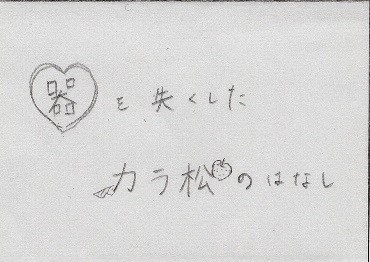 器を失くした
カラ松のはなし